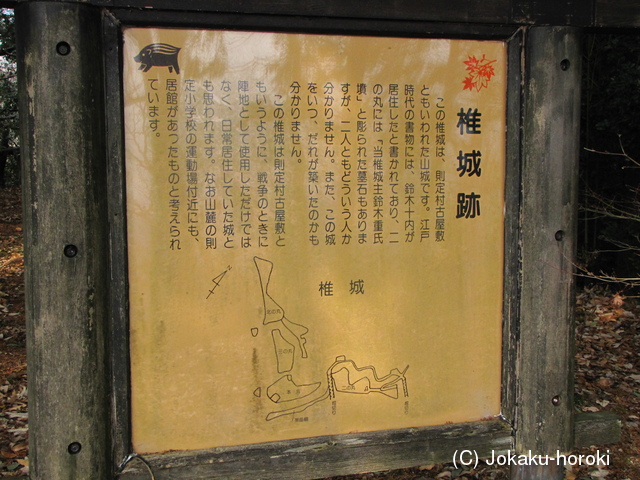 椎城跡
この椎城は、則定村古屋敷
ともいわれた山城です。江戸
時代の書物には、鈴木十内が
居住したと書かれており、二
の丸には「当椎城主鈴木重氏
墳」と彫られた墓石もありま
すが、二人ともどういう人か
分かりません。また、この城
をいつ、だれが築いたのかも
分かりません。
この椎城は則定村古屋敷と
もいうように、戦争のときに
陣地として使用しただけでは
なく、日常居住していた城と
も思われます。なお山麓の則
定小学校の運動場付近にも、
居館があったものと考えられ
ています。
椎城
二の丸
(C) Jokaku-horoki